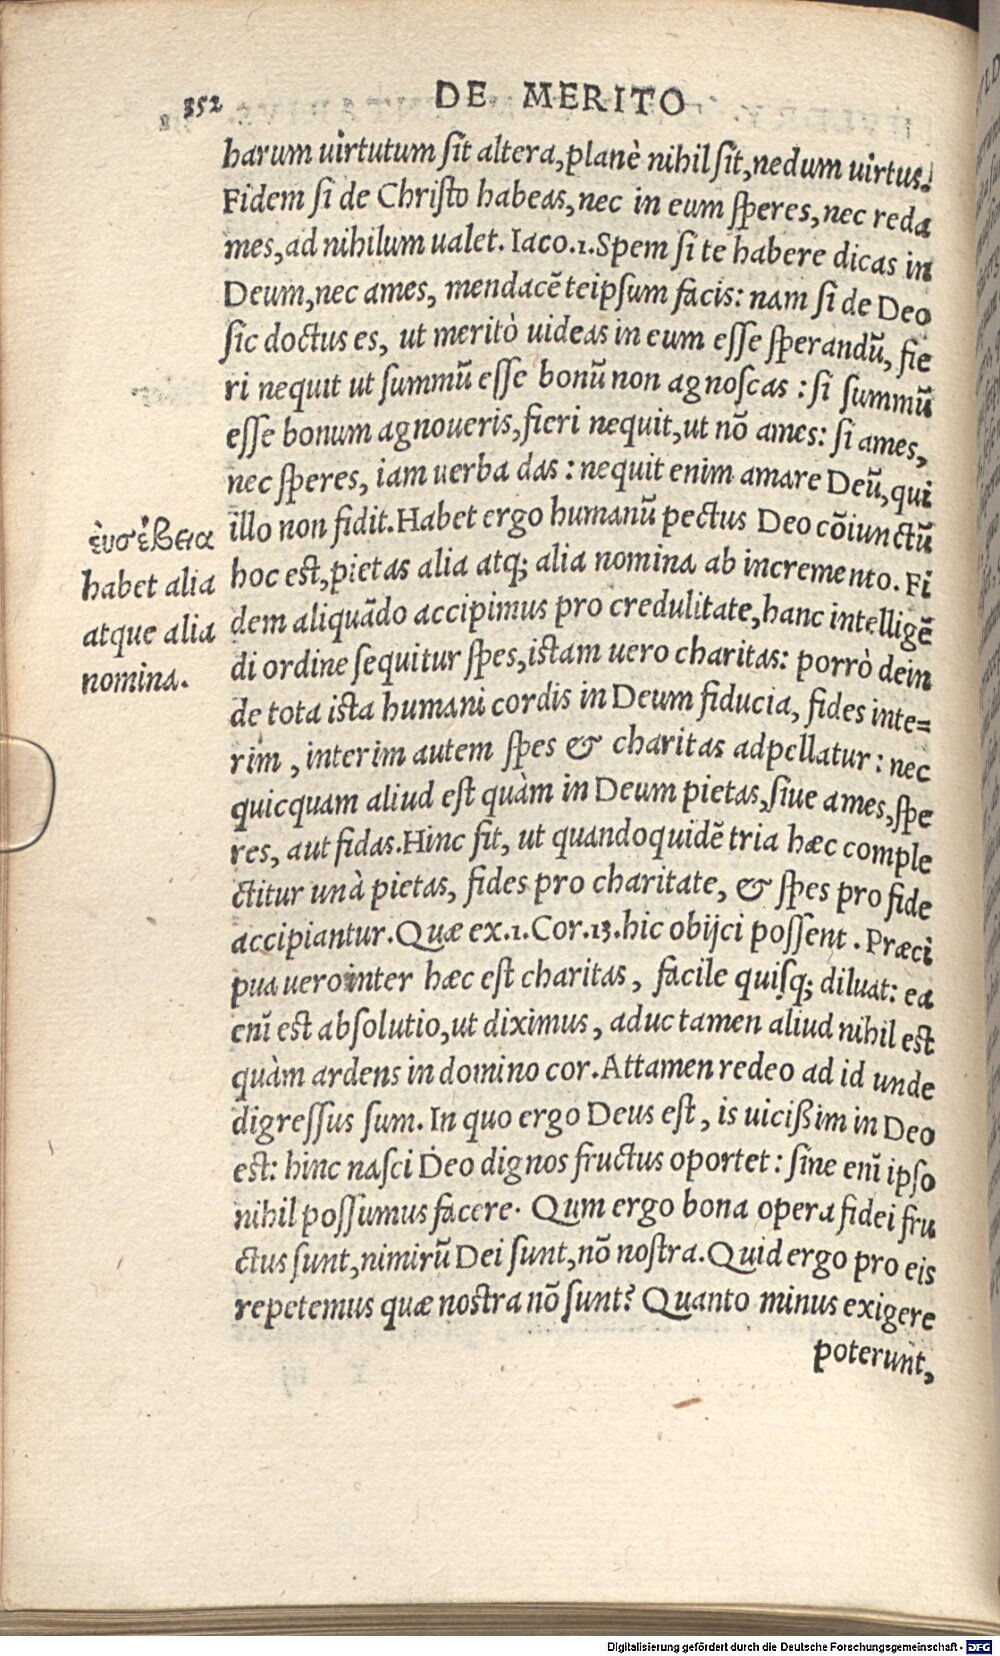 352 DE MERITO
harum uirtutum ſit altera, planè nihil ſit, nedum uirtus.
Fidem ſi de Chriſto habeas, nec in eum ſperes, nec reda
mes, ad nihilum ualet. Iaco.1. Spem ſi te habere dicas in
Deum, nec ames, mendacē teipſum facis: nam ſi de Deo
ſic doctus es, ut meritò uideas in eum eſſe ſperandū, fie
ri nequit ut ſummū eſſe bonū non agnoſcas: ſi ſummū
eſſe bonum agnoueris, fieri nequit, ut nō ames: ſi ames,
nec ſperes, iam uerba das: nequit enim amare Deū, qui
illo non fidit. Habet ergo humanū pectus Deo cōiunctū
hoc eſt, pietas alia atq; alia nomina ab incremento. Fi
dem aliquādo accipimus pro credulitate, hanc intelligē
di ordine ſequitur ſpes, iſtam uero charitas: porrò dein
de tota iſta humani cordis in Deum fiducia, fides inte=
rim, interim autem ſpes & charitas adpellatur: nec
quicquam aliud eſt quàm in Deum pietas, ſiue ames, ſpe
res, aut fidas. Hinc fit, ut quandoquidē tria hæc comple
ctitur unà pietas, fides pro charitate, & ſpes pro fide
accipiantur. Quæ ex.1.Cor.13. hic obijci poſſent. Præci
pua uero inter hæc eſt charitas, facile quiſq; diluat: ea
enī eſt abſolutio, ut diximus, aduc tamen aliud nihil eſt
quàm ardens in domino cor. Attamen redeo ad id unde
digreſſus ſum. In quo ergo Deus eſt, is uicißim in Deo
eſt: hinc naſci Deo dignos fructus oportet: ſine enī ipſo
nihil poſſumus facere. Qum ergo bona opera fidei fru
ctus ſunt, nimirū Dei ſunt, nō noſtra. Quid ergo pro eis
repetemus quæ noſtra nō ſunt? Quanto minus exigere
poterunt,
ἐυσέβεια
habet alia
atque alia
nomina.
Digitalisierung gefördert durch die Deutsche Forschungsgemeinschaft - DFG